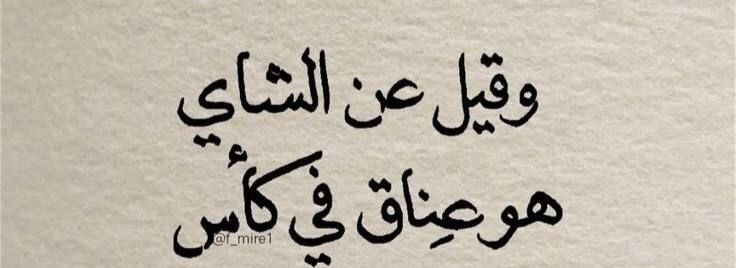 وقيل عن الشاي
هو عِناق في كأس
@f_mire1